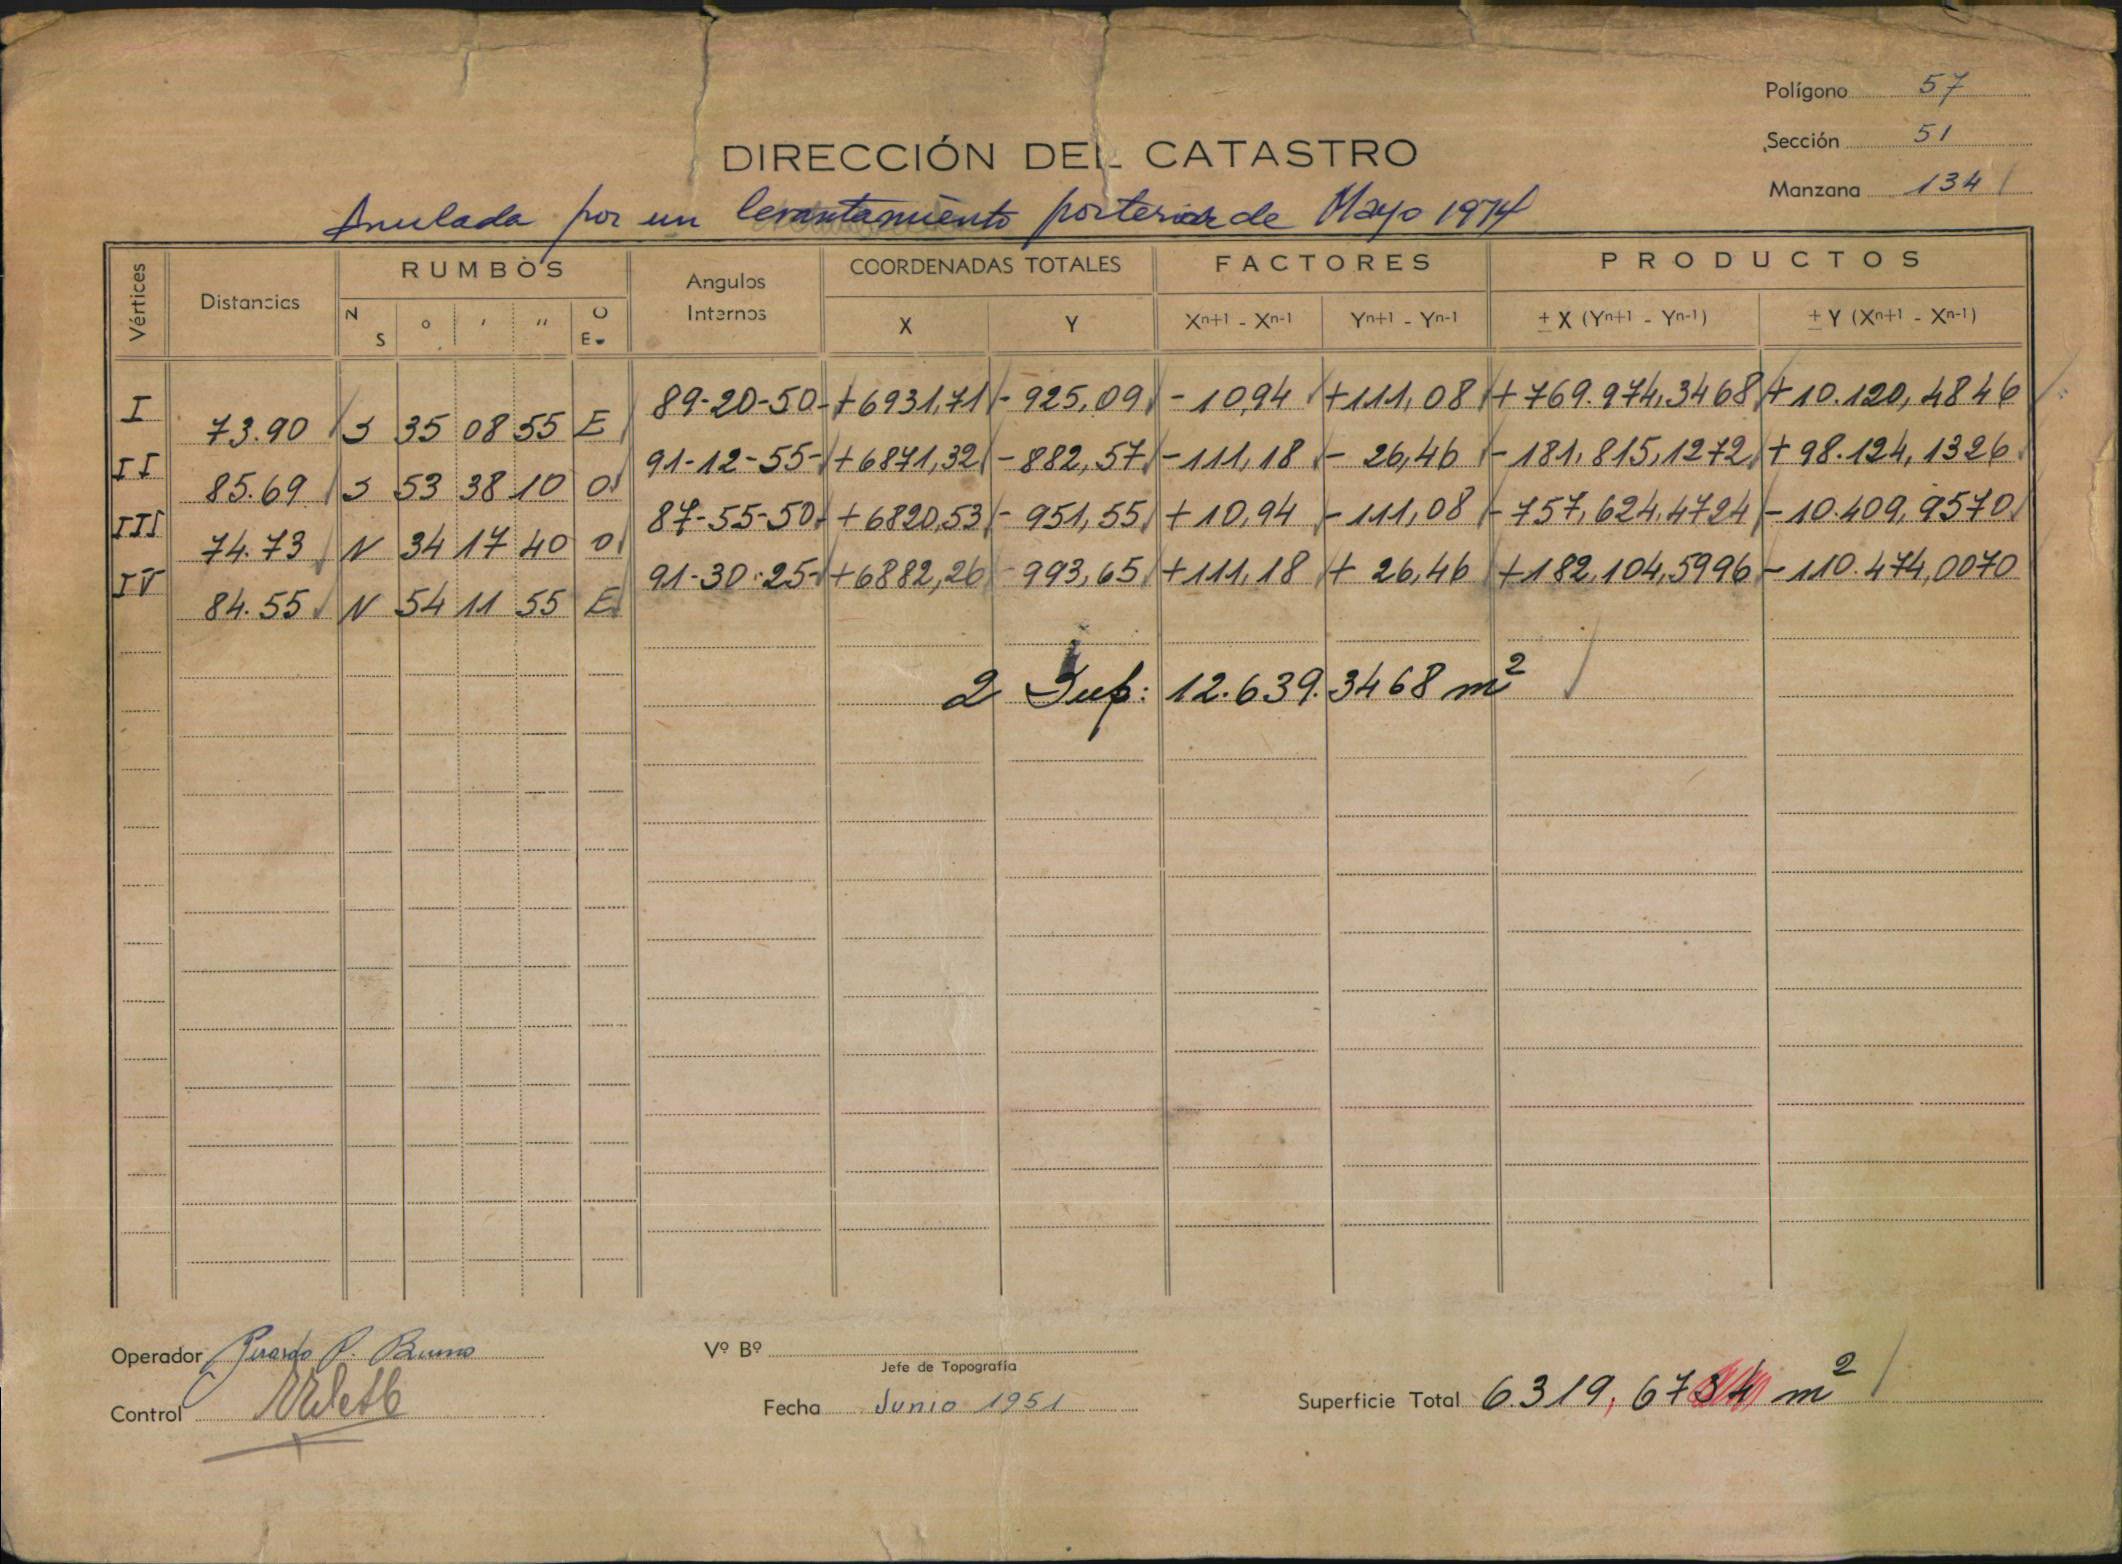 Polígono 57
Sección 51
Manzana 134
DIRECCIÓN DEL CATASTRO
Anulada por un levantamiento posterior de Mayo 1974
Vértices Distancias RUMBOS Angulos Internos COORDENADAS TOTALES FACTORES PRODUCTOS
N S ° ' '' O E X Y Xn+1 - Xn-1 Yn+1 - Yn-1 ± X (Yn+1 - Yn-1) ± Y (Xn+1 - Xn-1)
I 89-20-50 +6931,71 - 925,09 - 10,94 +111,08 + 769.974,3468 + 10.120,4846
73.90 S 35 08 55 E
II 91-12-55 +6871,32 - 882,57 - 111,18 - 26,46 - 181.815,1272 + 98.124,1326
85.69 S 53 38 10 O
III 87-55-50 + 6820,53 - 951,55 + 10,94 - 111,08 - 757,624,4724 - 10.409,9570
74.73 N 34 17 40 O
IV 91-30-25 +6882,26 - 993,65 +111,18 + 26,46 +182.104,5996 - 110.474,0070
84.55 N 54 11 55 E
2 Sup: 12.639.3468 m²
Operador Gerardo P. Bruno
Control
Vº Bº
Jefe de Topografía
Fecha Junio 1951
Superficie Total 6.319,6734 m²